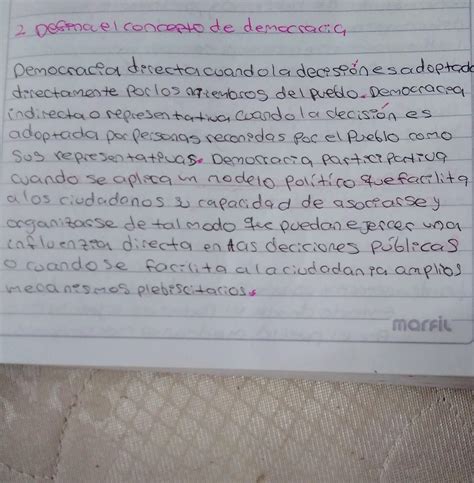 2. Defina el concepto de democracia
Democracia directa cuando la decesión es adoptada
directamente por los miembros del pueblo. Democracia
indirecta o representativa cuando la decisión es
adoptada por personas reconedas por el pueblo como
sus representativas. Democracia participartiva
cuando se aplica un modelo político que facilita
a los ciudadanos su capacidad de asociarse y
organizarse de tal modo que puedan ejercer una
influenzia directa en las deciciones públicas
o cuando se facilita a la ciudadanía amplios
mecanismos plebiscitarios.
marfil